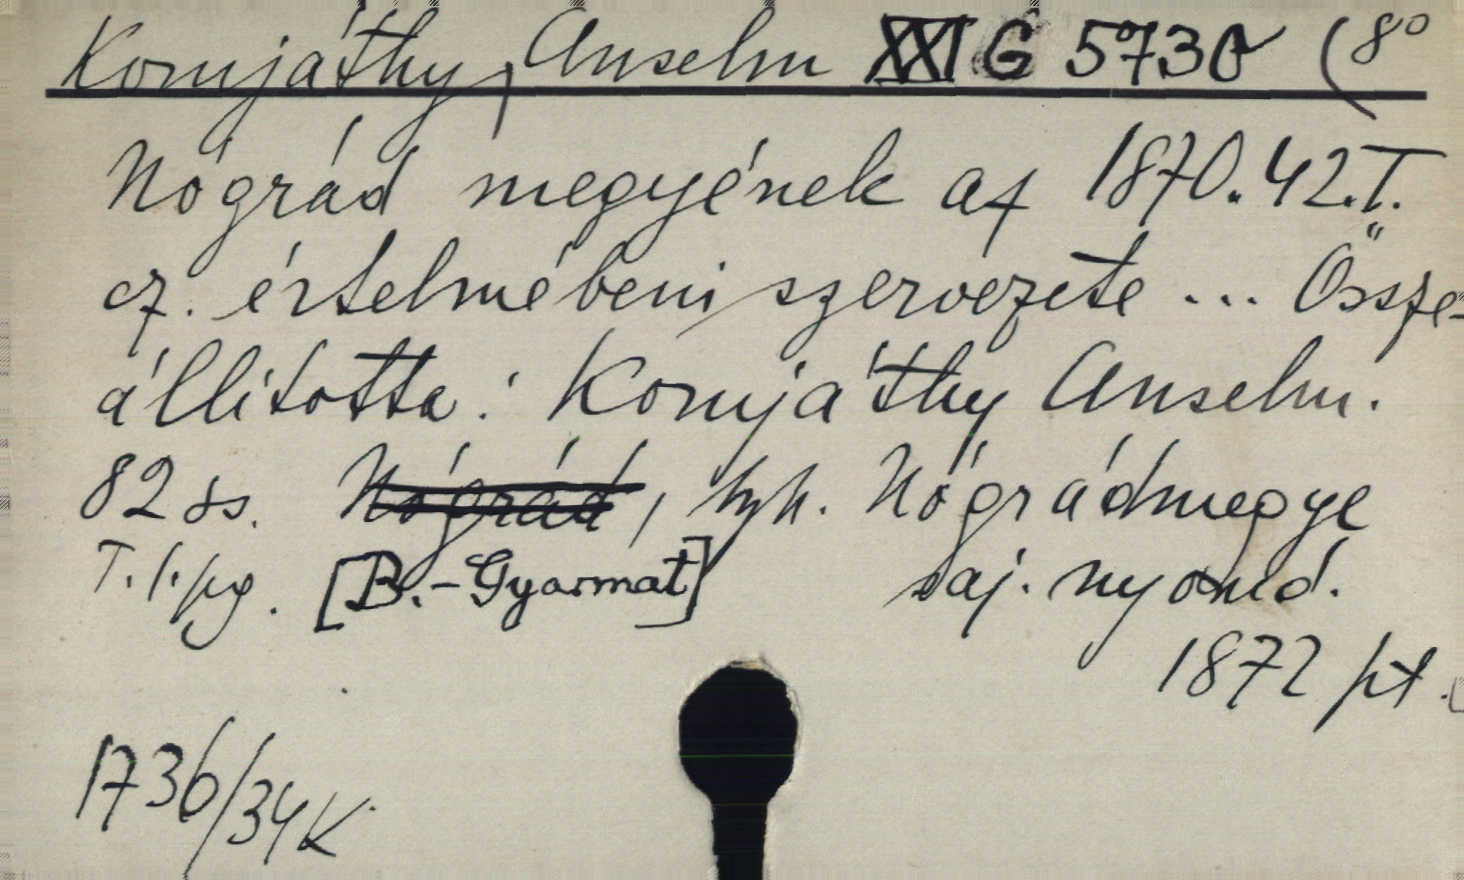 Komjáthy, Anselm XXI G 5730 (8°
Nógrád megyének az 1870. 42. T.
cz. értelmébeni szervezete ... Össze-
állitotta: Komjáthy Anselm.
82 ss. Nógrád, hyh. Nógrádmegye
T. l. pg. [B.-Gyarmat] saj. nyomd.
1872 pt.
1736/34 K